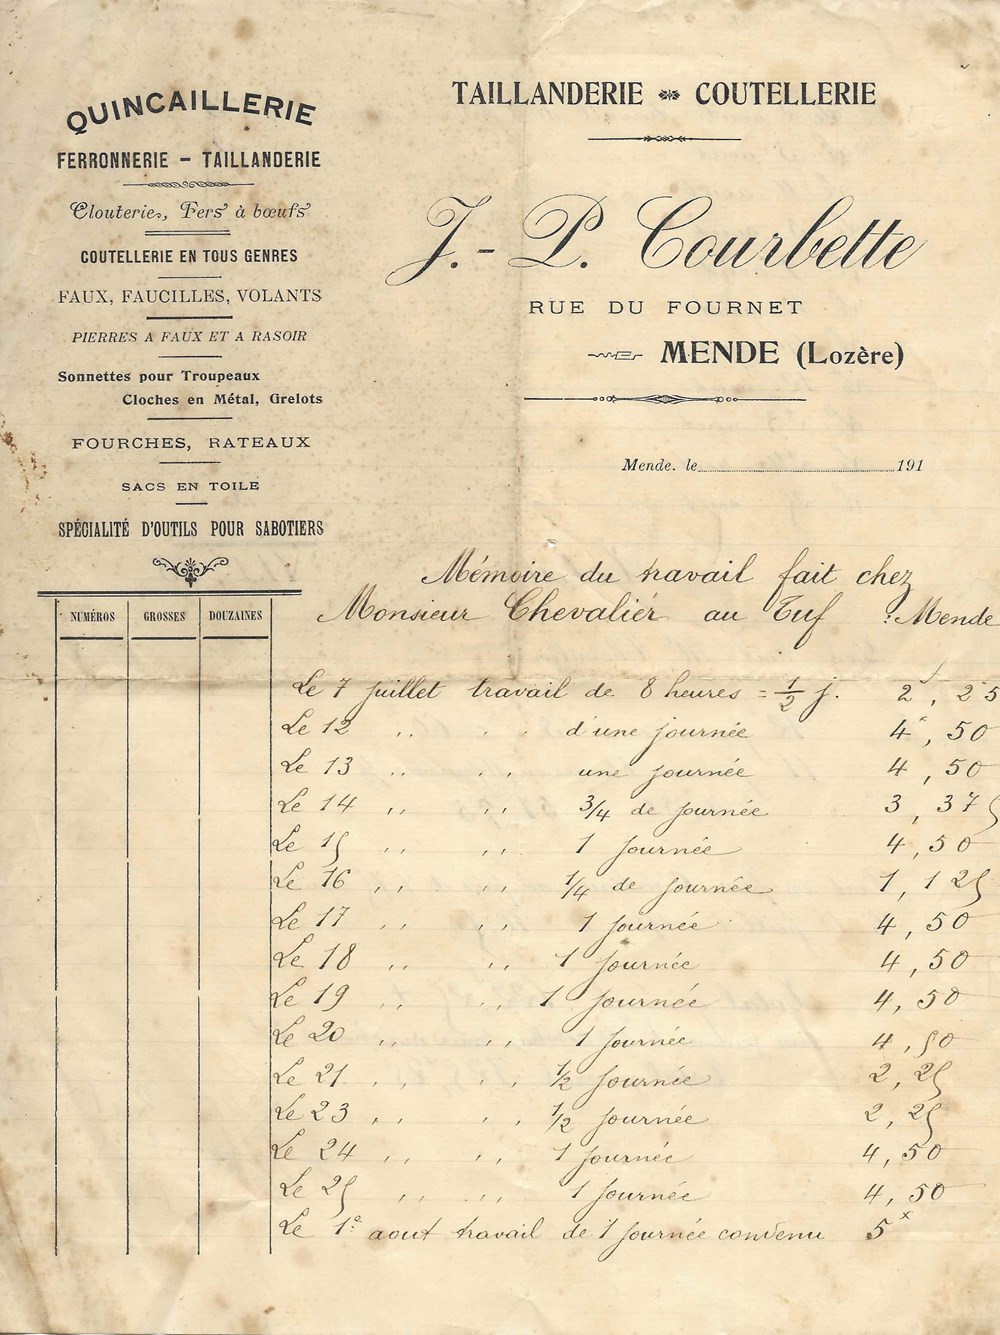 QUINCAILLERIE
FERRONNERIE - TAILLANDERIE
Clouterie, Fers à bœufs
COUTELLERIE EN TOUS GENRES
FAUX, FAUCILLES, VOLANTS
PIERRES A FAUX ET A RASOIR
Sonnettes pour Troupeaux
Cloches en Métal, Grelots
FOURCHES, RATEAUX
SACS EN TOILE
SPÉCIALITÉ D'OUTILS POUR SABOTIERS
TAILLANDERIE COUTELLERIE
J.-P. Courbette
RUE DU FOURNET
MENDE (Lozère)
Mende, le 191
NUMÉROS GROSSES DOUZAINES
Mémoire du travail fait chez
Monsieur Chevaliér au Tuf Mende
Le 7 juillet travail de 8 heures = 1/2 j. 2, 25
Le 12 ,, ,, d'une journée 4, 50
Le 13 ,, ,, une journée 4, 50
Le 14 ,, ,, 3/4 de journée 3, 375
Le 15 ,, ,, 1 journée 4, 50
Le 16 ,, ,, 1/4 de journée 1, 125
Le 17 ,, ,, 1 journée 4, 50
Le 18 ,, ,, 1 journée 4, 50
Le 19 ,, ,, 1 journée 4, 50
Le 20 ,, ,, 1 journée 4, 50
Le 21 ,, ,, 1/2 journée 2, 25
Le 23 ,, ,, 1/2 journée 2, 25
Le 24 ,, ,, 1 journée 4, 50
Le 25 ,, ,, 1 journée 4, 50
Le 1e aout travail de 1 journée convenu 5x